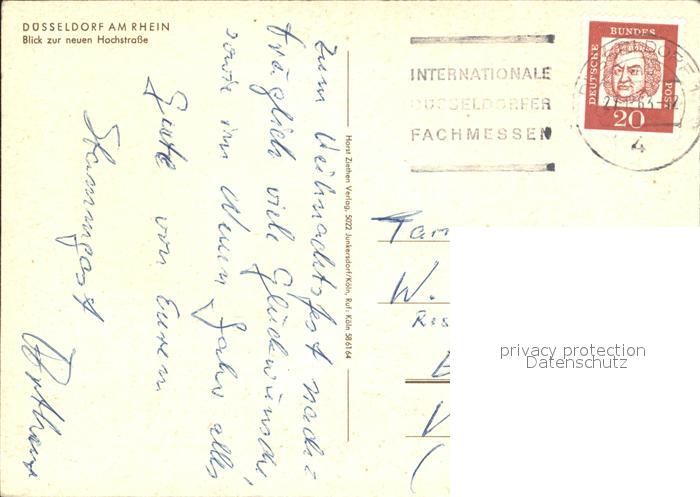 DÜSSELDORF AM RHEIN
Blick zur neuen Hochstraße
Zum Weihnachtsfest nach=
träglich viele Glückwünsche,
sowie im Neuen Jahr alles
Gute von Eurem
Stammgast
Horst Ziethen Verlag, 5022 Junkersdorf/Köln, Ruf: Köln 586164
INTERNATIONALE
DÜSSELDORFER
FACHMESSEN
DEUTSCHE BUNDES POST
20
4
Fam
W.
privacy protection
Datenschutz